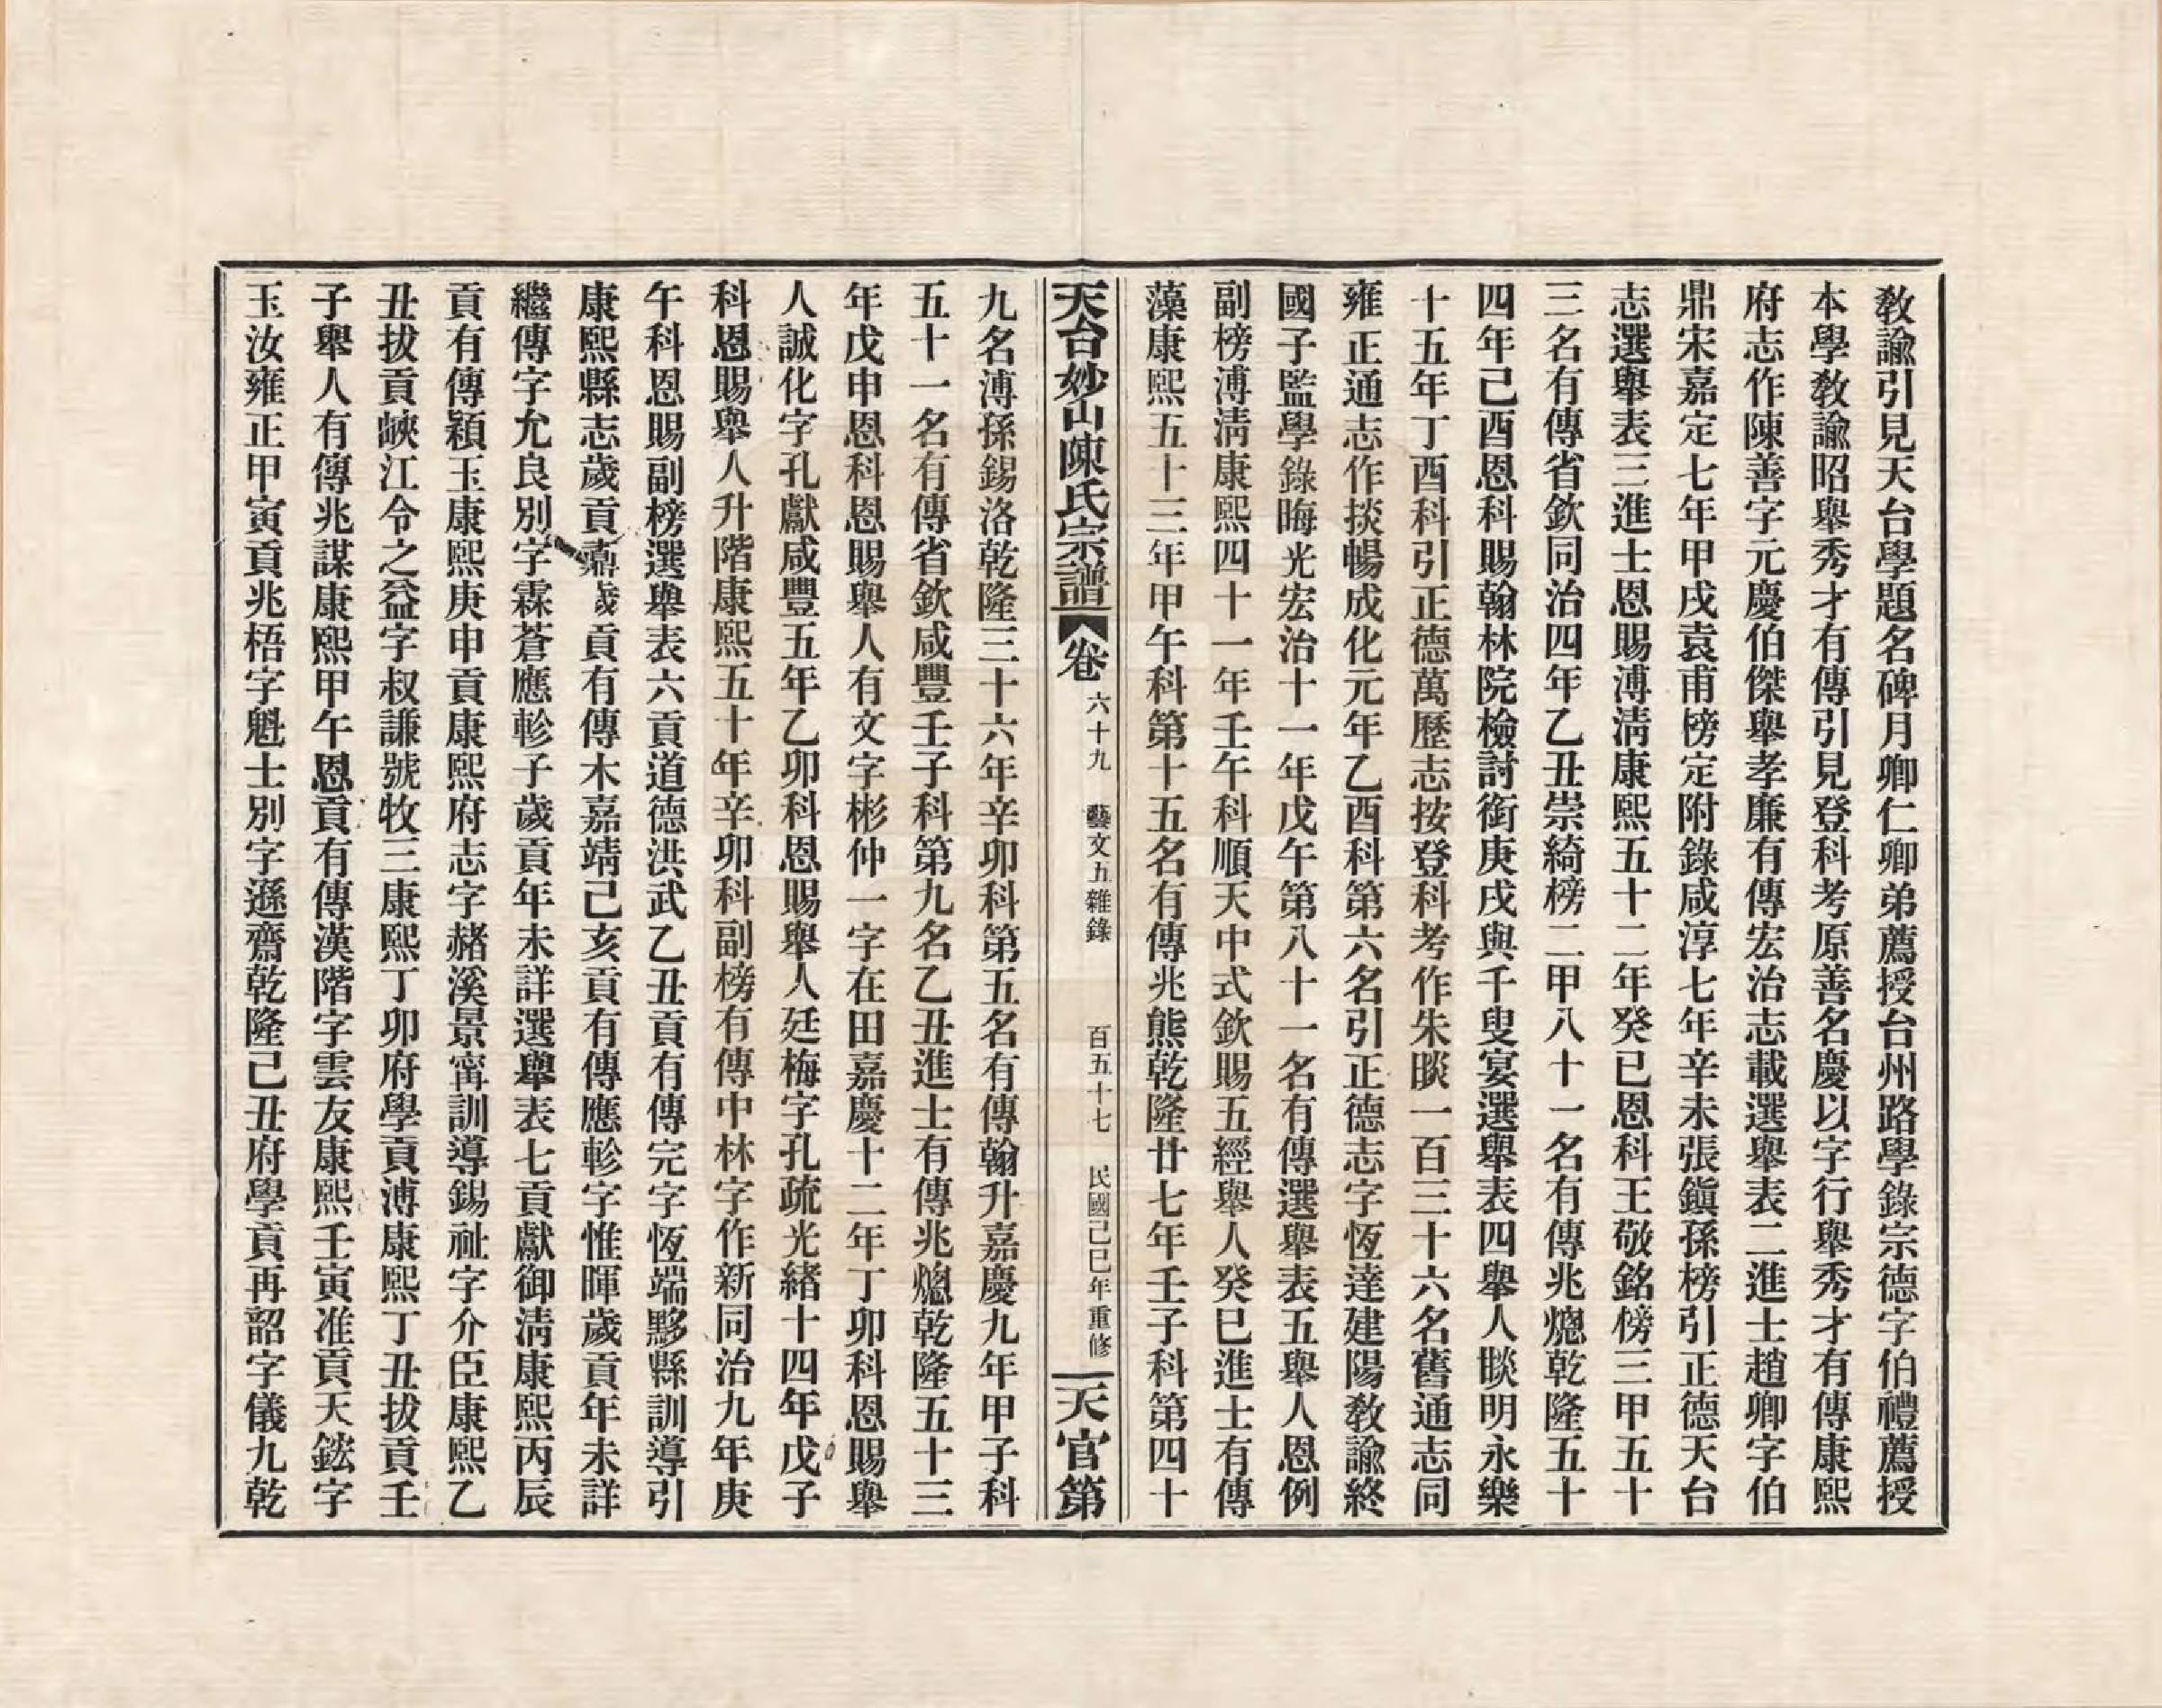 教諭引見天台學題名碑月卿仁卿弟薦授台州路學錄宗德字伯禮薦授
本學教諭昭舉秀才有傳引見登科考原善名慶以字行舉秀才有傳康熙
府志作陳善字元慶伯傑舉孝廉有傳宏治志載選舉表二進士趙卿字伯
鼎宋嘉定七年甲戌袁甫榜定附錄咸淳七年辛未張鎭孫榜引正德天台
志選舉表三進士恩賜溥淸康熙五十二年癸巳恩科王敬銘榜三甲五十
三名有傳省欽同治四年乙丑崇綺榜二甲八十一名有傳兆熜乾隆五十
四年己酉恩科賜翰林院檢討銜庚戌與千叟宴選舉表四舉人睒明永樂
十五年丁酉科引正德萬歷志按登科考作朱睒一百三十六名舊通志同
雍正通志作掞暢成化元年乙酉科第六名引正德志字恆達建陽教諭終
國子監學錄晦光宏治十一年戊午第八十一名有傳選舉表五舉人恩例
副榜溥淸康熙四十一年壬午科順天中式欽賜五經舉人癸巳進士有傳
藻康熙五十三年甲午科第十五名有傳兆熊乾隆廿七年壬子科第四十
天台妙山陳氏宗譜 卷 六十九 藝文五雜錄 百五十七 民國己巳年重修 天官第
九名溥孫錫洛乾隆三十六年辛卯科第五名有傳翰升嘉慶九年甲子科
五十一名有傳省欽咸豐壬子科第九名乙丑進士有傳兆熜乾隆五十三
年戊申恩科恩賜舉人有文字彬仲一字在田嘉慶十二年丁卯科恩賜舉
人誠化字孔獻咸豐五年乙卯科恩賜舉人廷梅字孔疏光緒十四年戊子
科恩賜舉人升階康熙五十年辛卯科副榜有傳中林字作新同治九年庚
午科恩賜副榜選舉表六貢道德洪武乙丑貢有傳完字恆端黟縣訓導引
康熙縣志歲貢鼐歲貢有傳木嘉靖己亥貢有傳應軫字惟暉歲貢年未詳
繼傳字允良別字霖蒼應軫子歲貢年未詳選舉表七貢獻御淸康熙丙辰
貢有傳穎玉康熙庚申貢康熙府志字赭溪景甯訓導錫祉字介臣康熙乙
丑拔貢峽江令之益字叔謙號牧三康熙丁卯府學貢溥康熙丁丑拔貢壬
子舉人有傳兆謀康熙甲午恩貢有傳漢階字雲友康熙壬寅准貢天鋐字
玉汝雍正甲寅貢兆梧字魁士別字遜齋乾隆己丑府學貢再韶字儀九乾